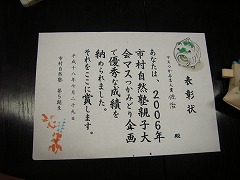 表彰状
マスつかみ大賞 佐治 殿
あなたは、2006年
市村自然塾親子大
会マスつかみどり企画
で優秀な成績を
納められました。
それをここに賞します。
平成十八年七月二十九日
市村自然塾 第5期生